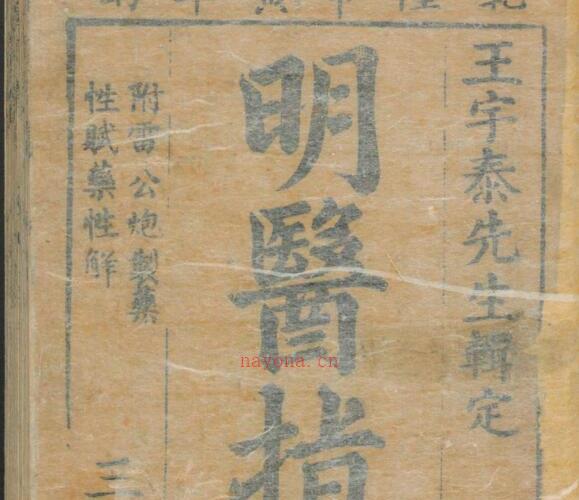 王宇泰先生輯定
明醫指
附雷公炮製藥
性賦藥性解
三
nayona.cn